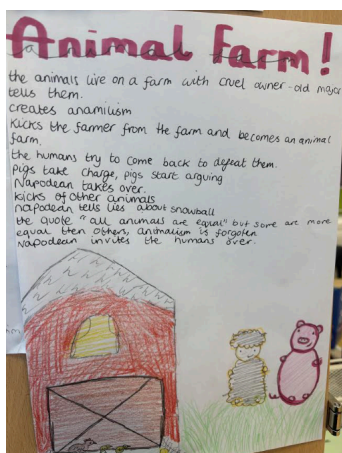 Animal Farm!
the animals live on a farm with cruel owner - old major
tells them.
creates anamilism
Kicks the farmer from the farm and becomes an animal
farm.
the humans try to come back to defeat them.
Pigs take charge, pigs start arguing
Napodean takes over.
kicks of other animals
napodean tells lies about snowball
the quote "all animals are equal" but some are more
equal then others, animalism is forgotten
Napodean invites the humans over.